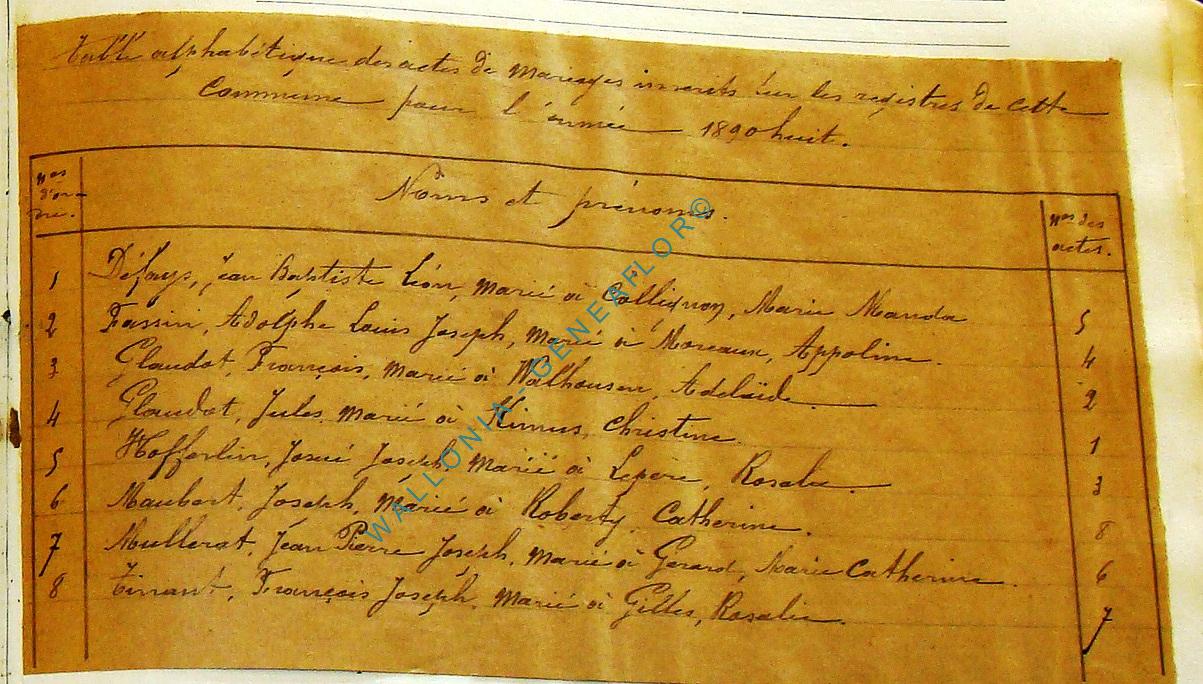 Table alphabétique des actes de mariages inscrits sur les registres de cette
commune pour l'année 1890 huit.
Nos d'or-dre.
Noms et prénoms.
Nos des actes.
1 Défays, Jean Baptiste Léon, marié à Collignon, Marie Nanda 5
2 Fassin, Adolphe Louis Joseph, marié à Moreaux, Appoline. 4
3 Glaudot, François, marié à Walhousen, Adelaïde 2
4 Glaudot, Jules, marié à Kinus, Christine. 1
5 Hofferlin, Josué Joseph, marié à Lepère, Rosalie. 3
6 Maubert, Joseph, marié à Roberty, Catherine. 8
7 Mullerat, Jean Pierre Joseph, marié à Gerard, Marie Catherine. 6
8 Tinant, François Joseph, marié à Gilles, Rosalie. 7
WALLONIA - GENEAFLOR©